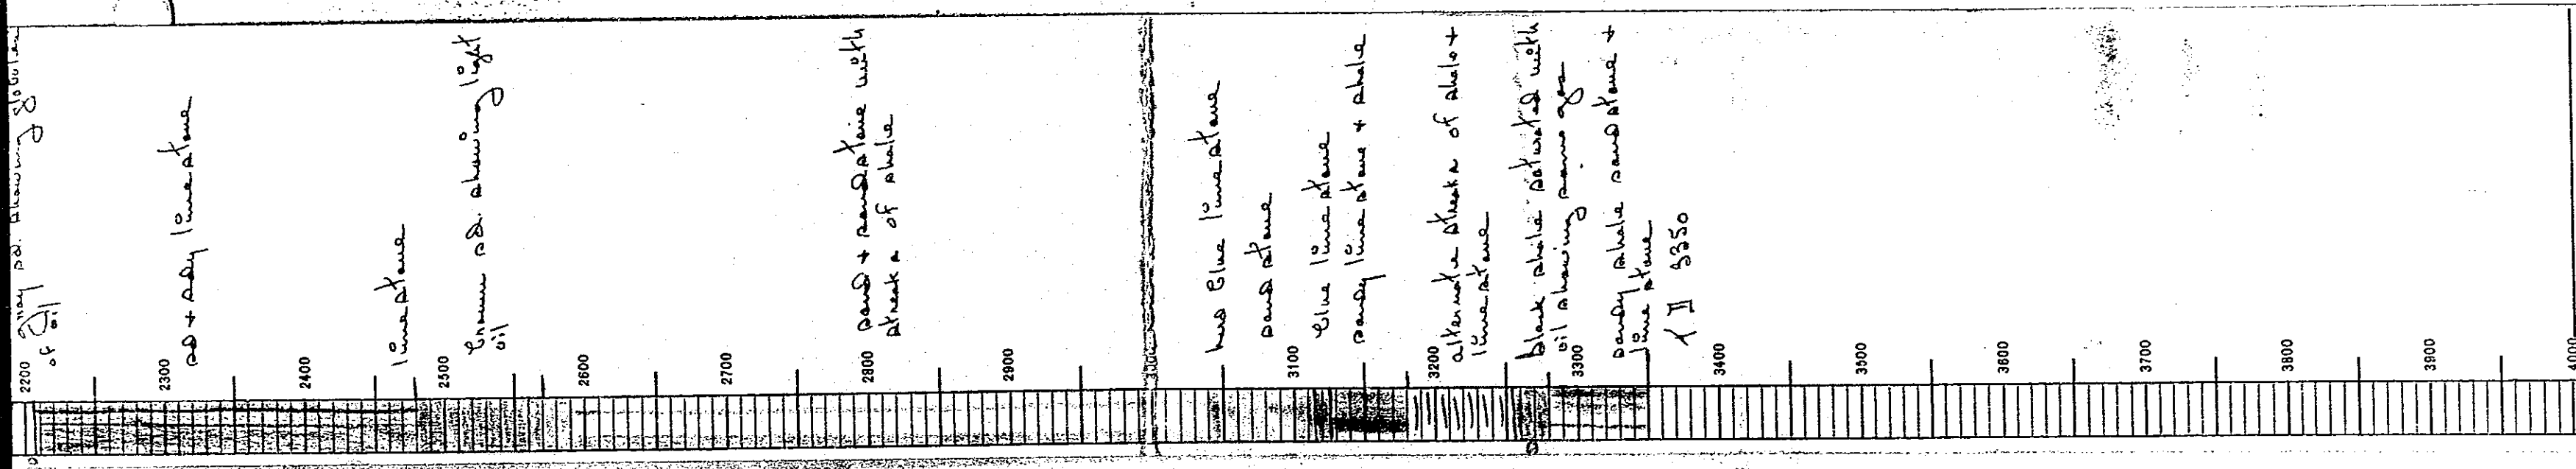 2200
gray sd. showing globules
of oil
2300
sd + sdy lime stone
2400
lime stone
2500
Brown sd. showing light
oil
2600
2700
2800
sand + sand stone with
streaks of shale
2900
3000
hard blue lime stone
3100
sand stone
blue lime stone
sandy lime stone + shale
3200
alternate streaks of shale +
lime stone
black shale saturated with
oil showing some gas
3300
sandy shale sand stone +
lime stone
T D 3350
3400
3500
3600
3700
3800
3900
4000